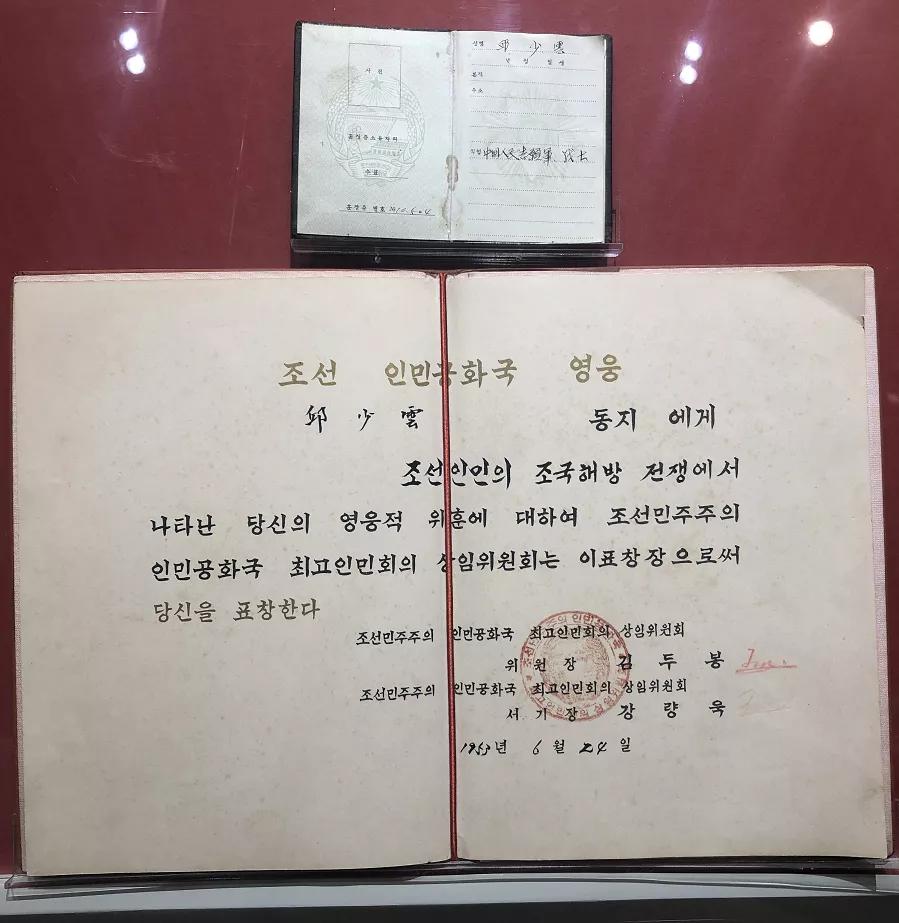 사진
훈장증소유자의
수표
훈장증 번호
성명 邱少雲
년 월 일생
본적
주소
직업 中國人民志願軍 战士
조선 인민공화국 영웅
邱少雲 동지 에게
조선인민의 조국해방 전쟁에서
나타난 당신의 영웅적 위훈에 대하여 조선민주주의
인민공화국 최고인민회의 상임위원회는 이표창장으로써
당신을 표창한다
조선민주주의 인민공화국 최고인민회의 상임위원회
위원장 김두봉
조선민주주의 인민공화국 최고인민회의 상임위원회
서기장 강량욱
1953년 6월 24일